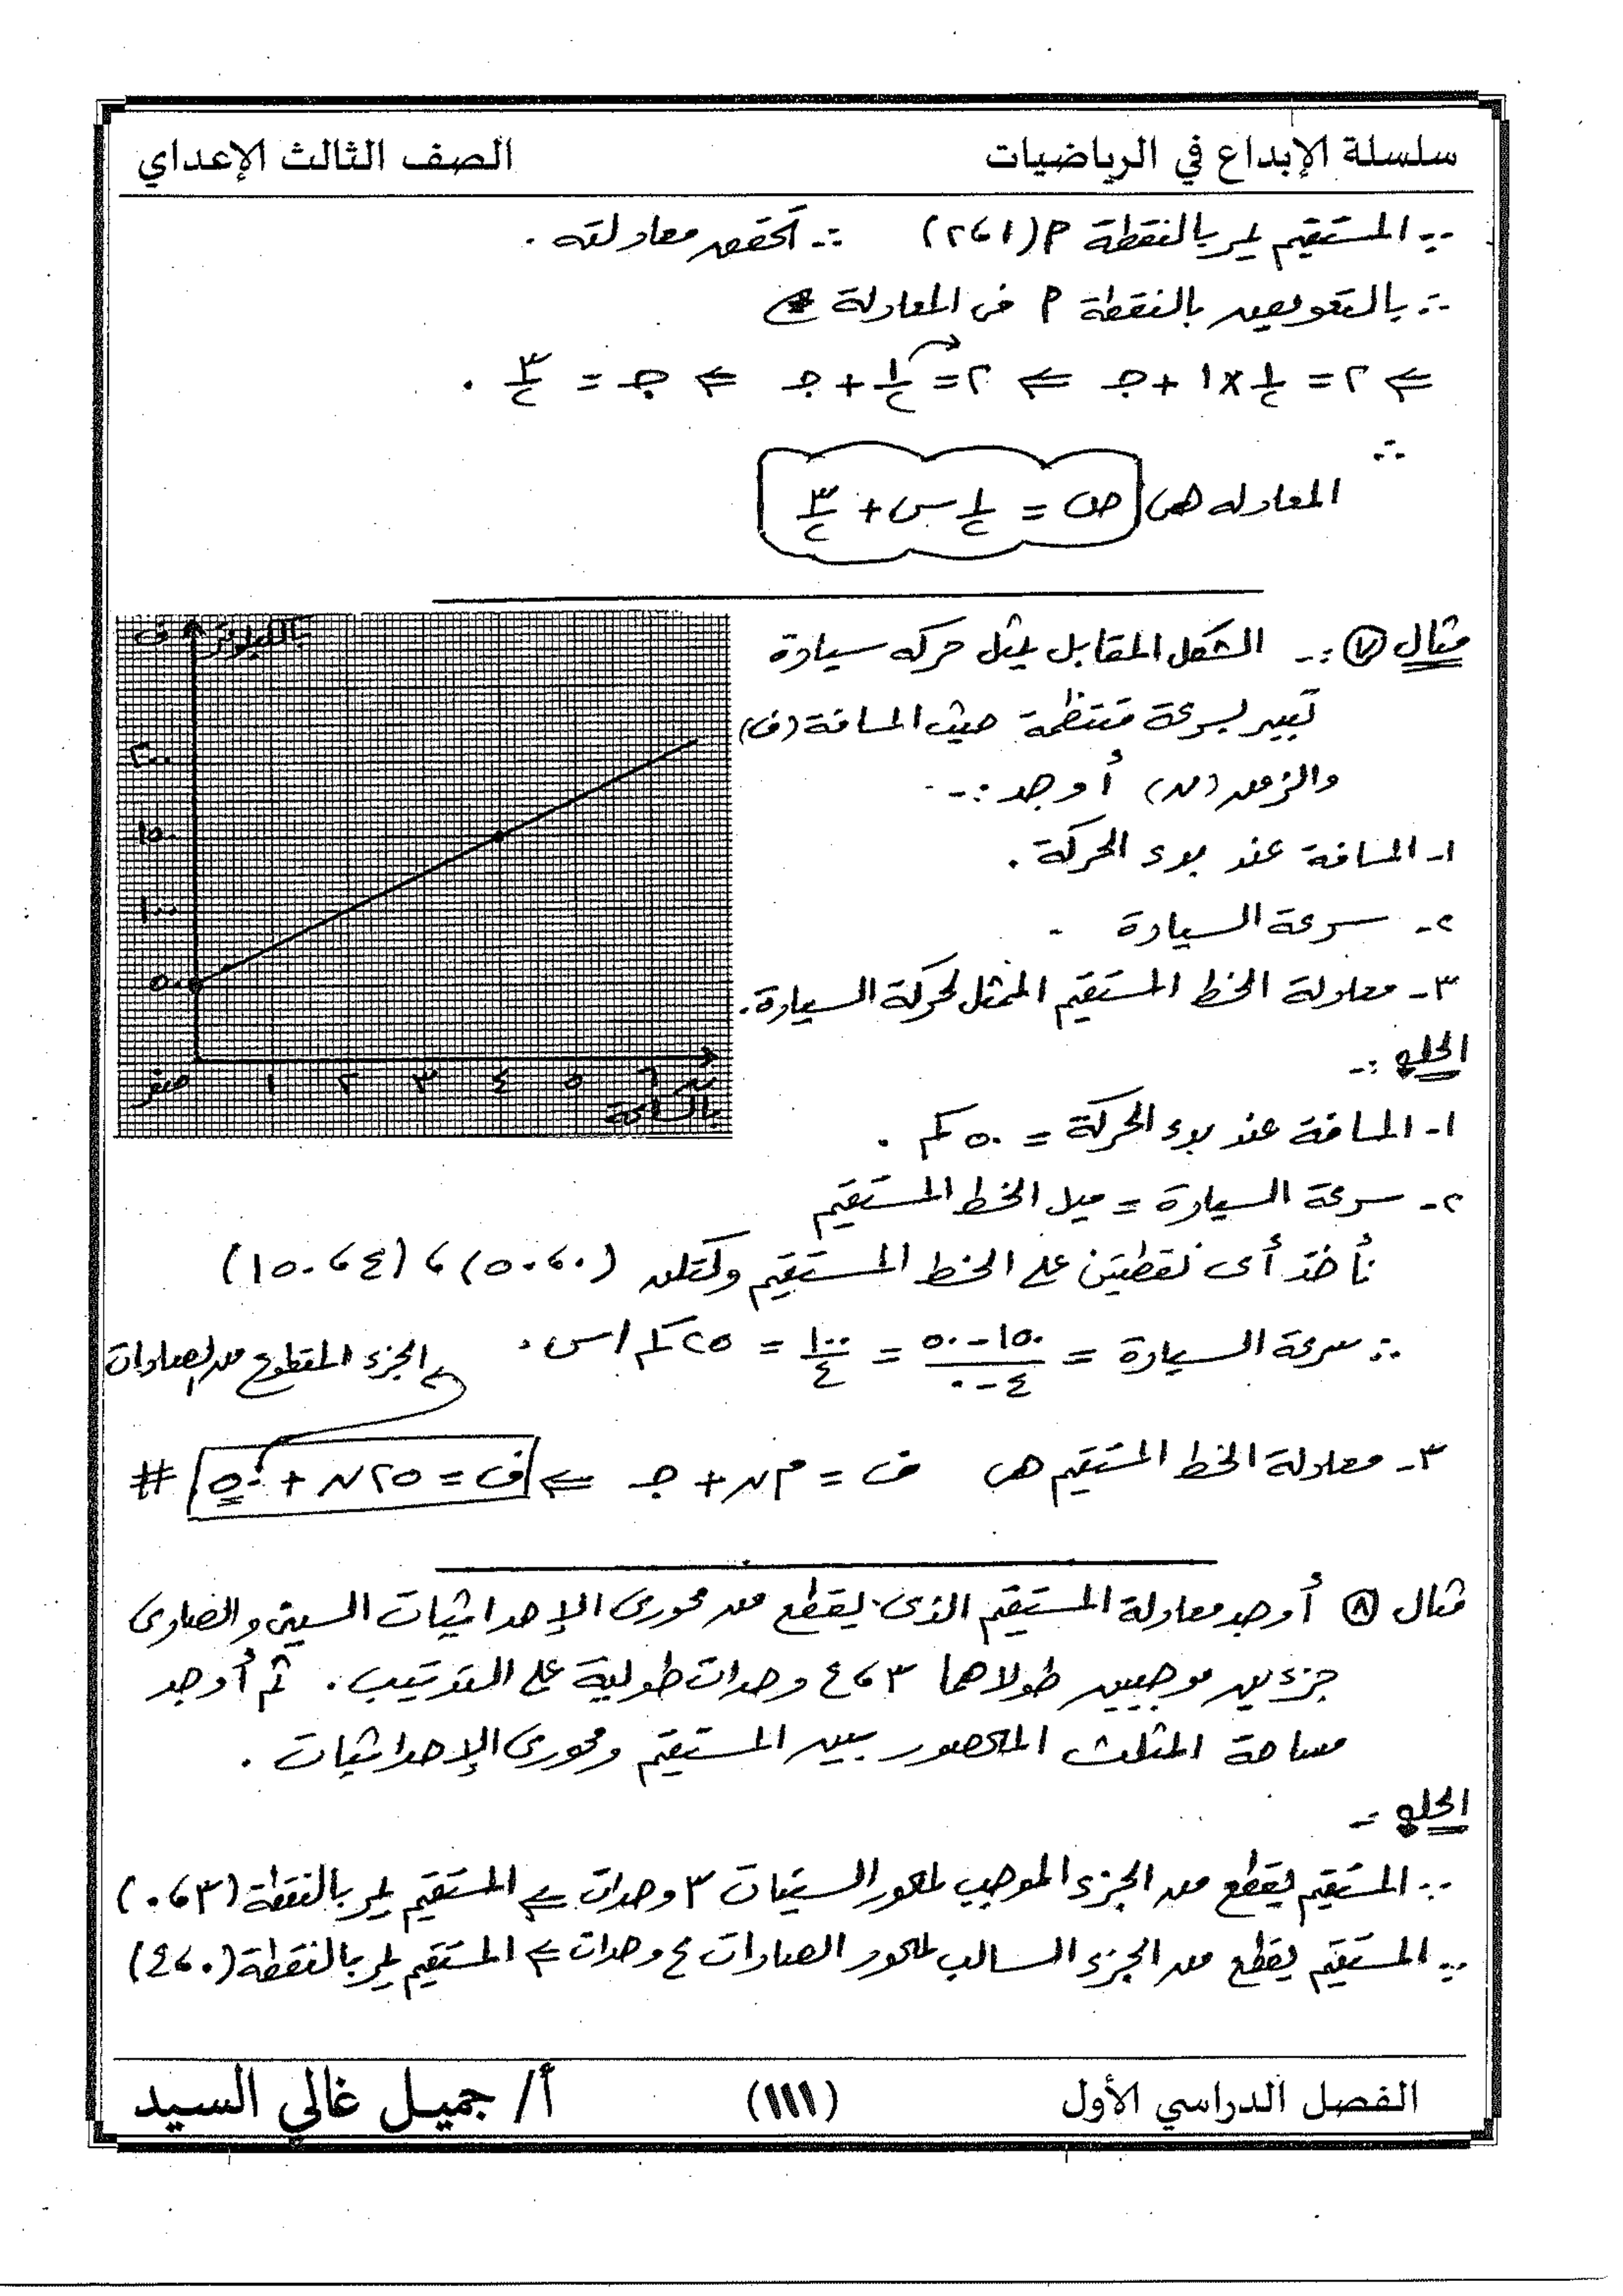 سلسلة الإبداع في الرياضيات
الصف الثالث الإعداي
∵ المستقيم يمر بالنقطة P (١، ٢) ∴ تحقق معادلته .
∴ بالتعويض بالنقطة P فى المعادلة
⇐ ٢ = ١/٢ × ١ + جـ ⇐ ٢ = ١/٢ + جـ ⇐ جـ = ٣/٢ .
∴
المعادله هى ص = ١/٢ س + ٣/٢
مثال ٧ :- الشكل المقابل يمثل حركه سيارة
تسير بسرعة منتظمة حيث المسافة (ف)
والزمن (ن) أوجد :-
١- المسافة عند بدء الحركة .
٢- سرعة السيارة .
٣- معادلة الخط المستقيم الممثل لحركة السيارة .
ف بالكيلومتر
٢٠٠
١٥٠
١٠٠
٥٠
صفر ١ ٢ ٣ ٤ ٥ ٦ ن
بالساعة
الحل :-
١- المسافة عند بدء الحركة = ٥٠ كم .
٢- سرعة السيارة = ميل الخط المستقيم
نأخذ أى نقطتين على الخط المستقيم ولتكن (٠، ٥٠) ، (٤، ١٥٠)
∴ سرعة السيارة = ١٥٠ - ٥٠ / ٤ - ٠ = ١٠٠/٤ = ٢٥ كم/س .
الجزء المقطوع من الصادات
٣- معادلة الخط المستقيم هى ف = م ن + جـ ⇐ ف = ٢٥ ن + ٥٠ #
مثال ٨ أوجد معادلة المستقيم الذى يقطع من محورى الإحداثيات السينى والصادى
جزءين موجبين طولاهما ٣ ، ٤ وحدات طولية على الترتيب . ثم أوجد
مساحة المثلث المحصور بين المستقيم ومحورى الإحداثيات .
الحل :-
∵ المستقيم يقطع من الجزء الموجب لمحور السينات ٣ وحدات ⇐ المستقيم يمر بالنقطة (٣، ٠)
∵ المستقيم يقطع من الجزء السالب لمحور الصادات ٤ وحدات ⇐ المستقيم يمر بالنقطة (٠، ٤)
الفصل الدراسي الأول
(١١١)
أ/ جميل غالي السيد